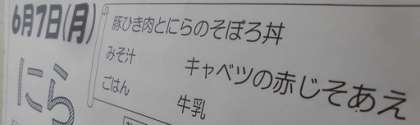 6月7日(月)
にら
豚ひき肉とにらのそぼろ丼
みそ汁
キャベツの赤じそあえ
ごはん
牛乳